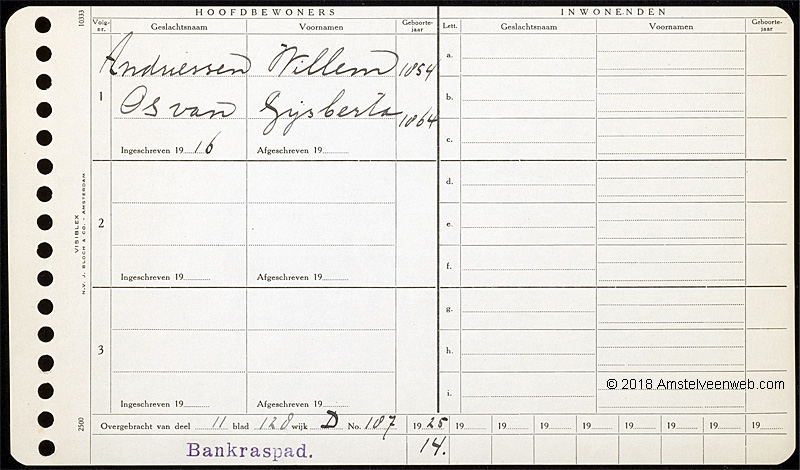 HOOFDBEWONERS INWONENDEN
10333 Volg-nr. Geslachtsnaam Voornamen Geboorte-jaar Lett. Geslachtsnaam Voornamen Geboorte-jaar
Andriessen Willem 1854 a.
1 Os van Gijsberta 1864 b.
c.
Ingeschreven 1916 Afgeschreven 19
d.
2 e.
VISIBLEX
N.V. J. BLOCH & CO. - AMSTERDAM
f.
Ingeschreven 19 Afgeschreven 19
g.
3 h.
i.
Ingeschreven 19 Afgeschreven 19
© 2018 Amstelveenweb.com
2500 Overgebracht van deel 11 blad 128 wijk D No. 107 1925 19 19 19 19 19 19 19 19
Bankraspad. 14.